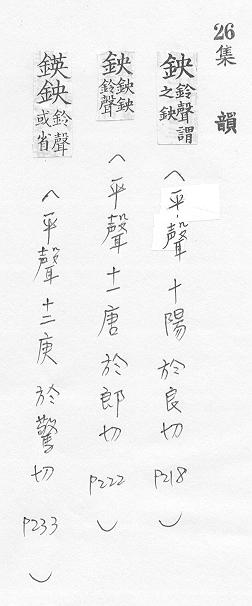 26
集韻
鉠鈴聲謂之鉠
(平聲十陽於良切 P218)
鉠鉠鉠鈴聲
(平聲十一唐於郎切 P222)
鍈鉠鈴聲或省
(平聲十二庚於驚切 P233)